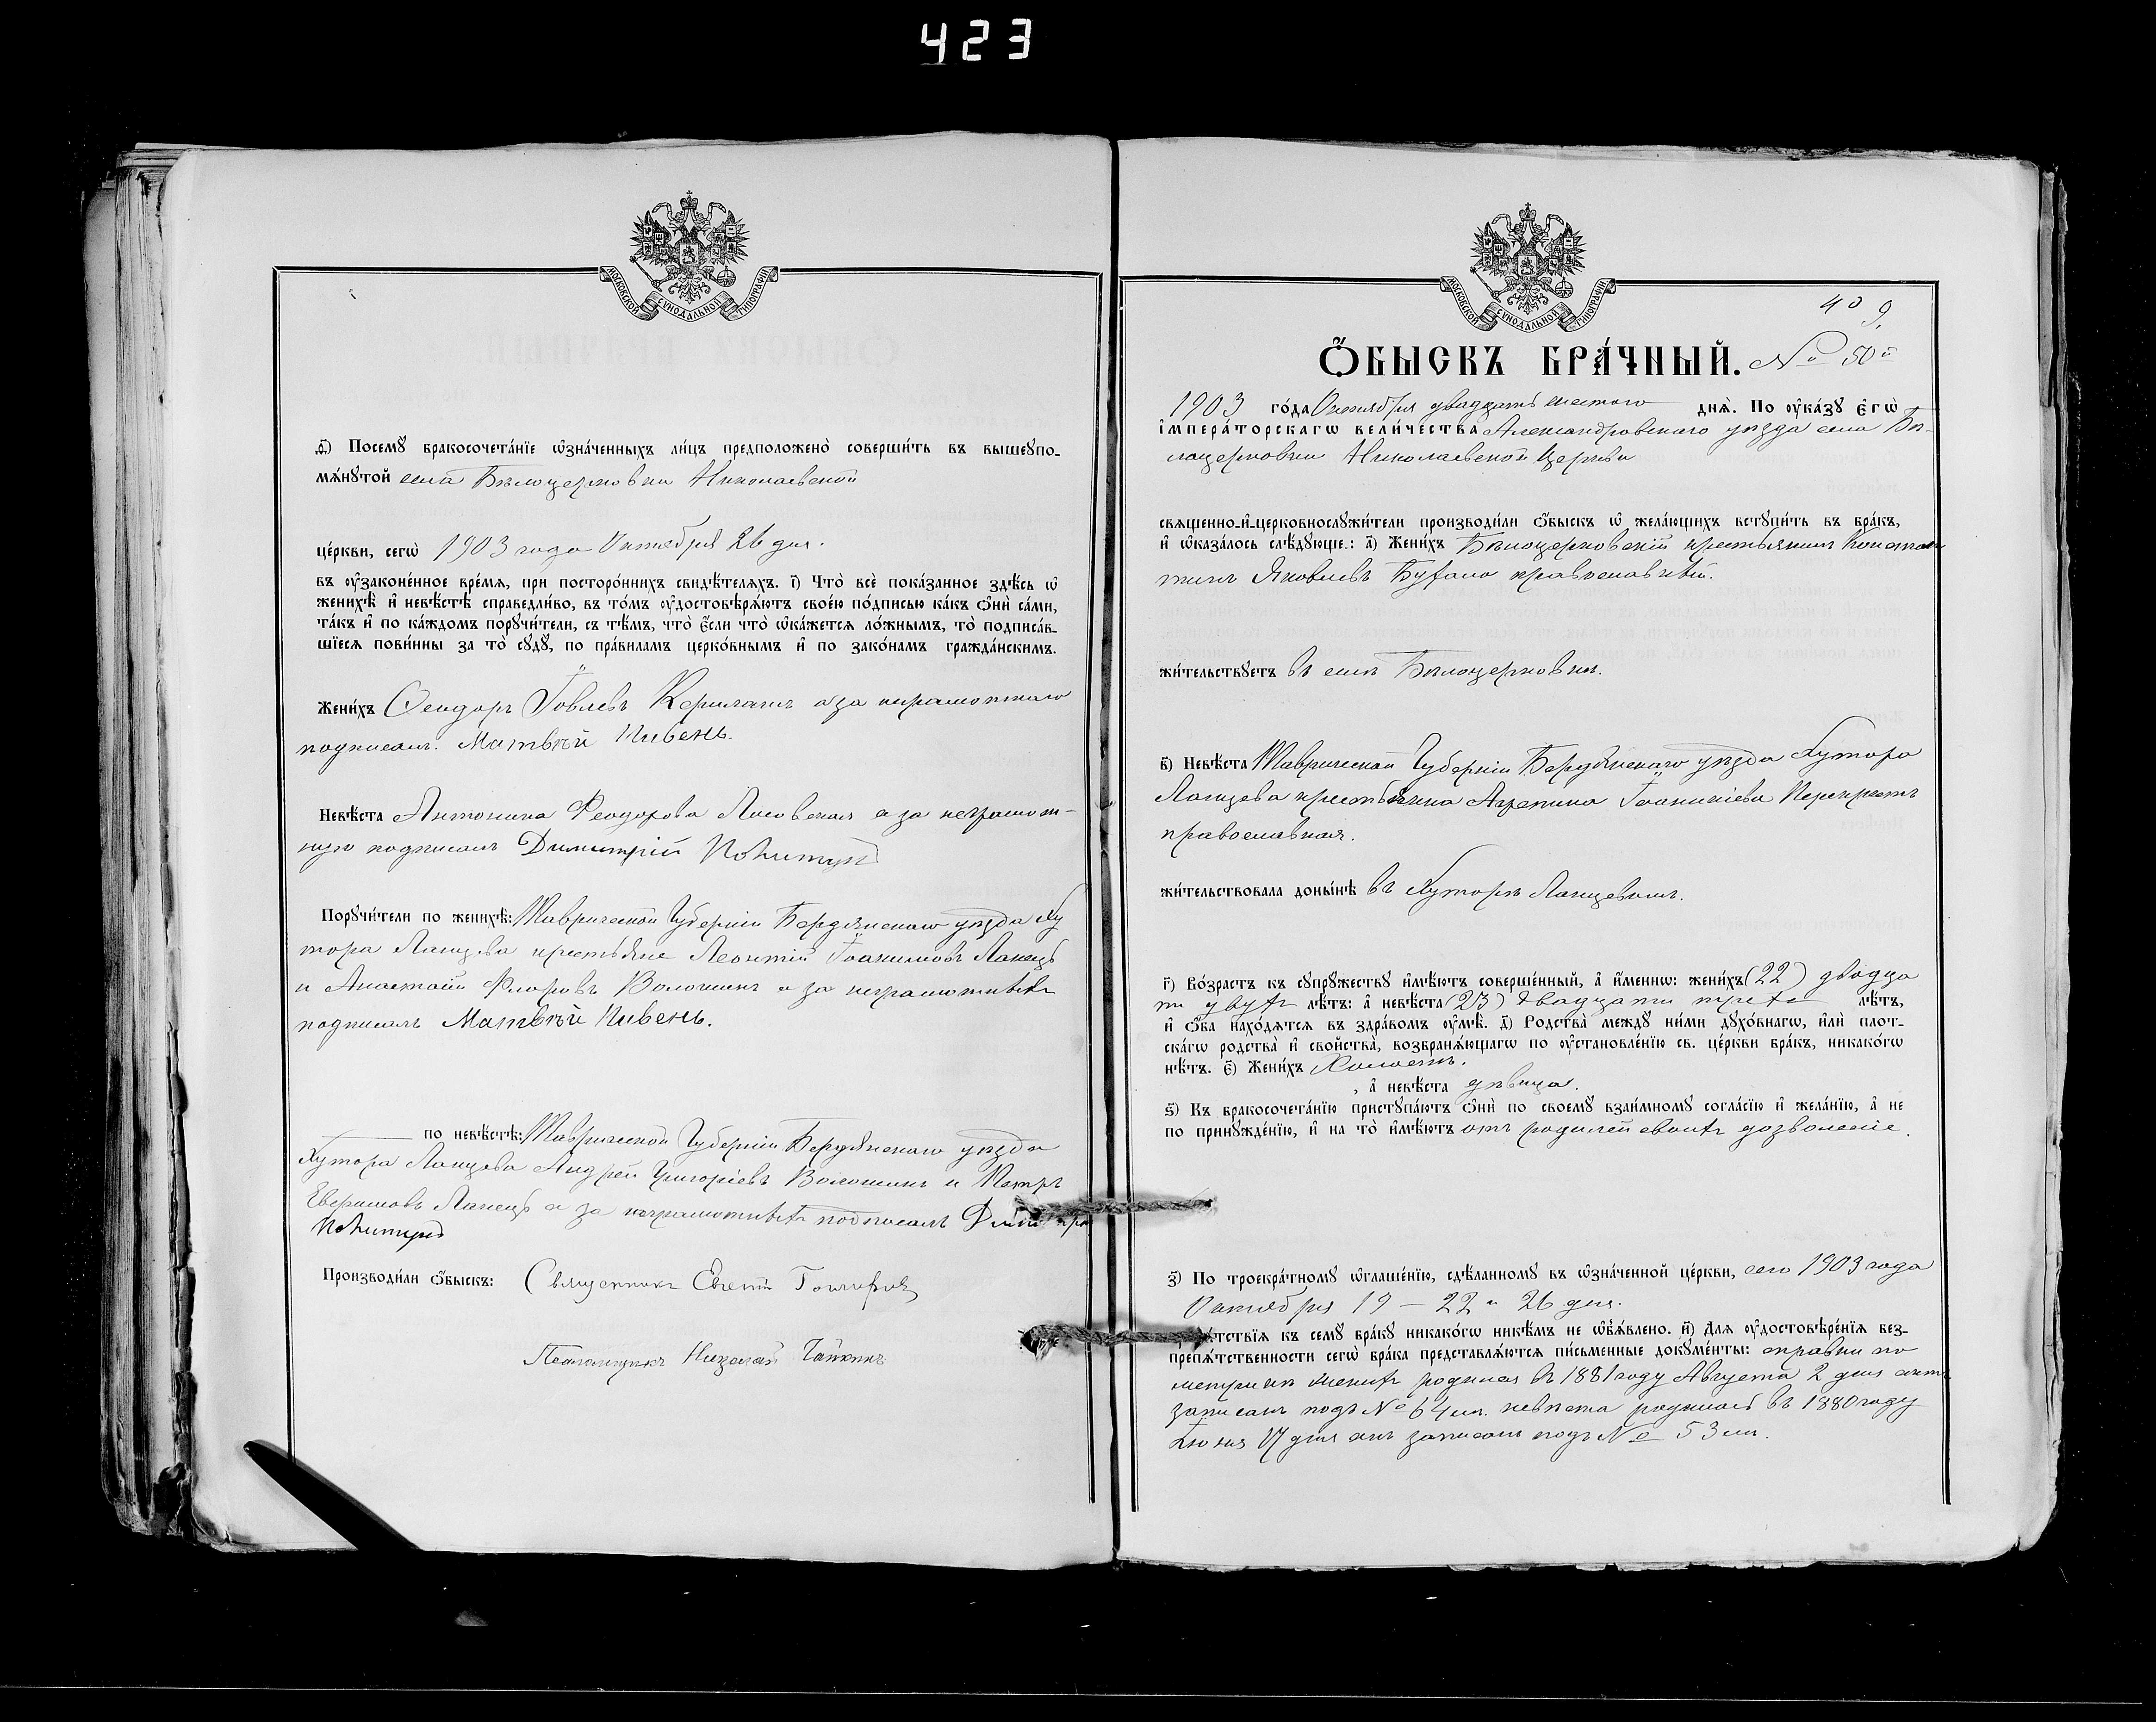 423
МОСКОВСКОЙ СѴНОДАЛЬНОЙ ТИПОГРАФІИ
ѳ҃) Посемꙋ бракосочета́нїе ѡ҆зна́ченныхъ ли́цъ предположено̀ соверши́ть въ вышеꙋпо-
мѧ́нꙋтой села Бѣлоцерковки Николаевской
це́ркви, сегѡ̀ 1903 года Октября 26 дня.
въ ᲂу҆законе́нное вре́мѧ, при посторо́ннихъ свидѣ́телѧхъ. і҃) Что̀ всѐ пока́занное здѣ́сь ѡ҆
женихѣ̀ и҆ невѣ́стѣ справедли́во, въ то́мъ ᲂу҆достовѣрѧ́ютъ свое́ю по́дписью ка́къ ѻ҆нѝ са́ми,
та́къ и҆ по ка́ждомъ порꙋчи́тели, съ тѣ́мъ, что̀ є҆́сли что̀ ѡ҆ка́жетсѧ ло́жнымъ, то̀ подписа́в-
шїесѧ пови́нны за то̀ сꙋдꙋ̀, по пра́виламъ церко́внымъ и҆ по зако́намъ гражда́нскимъ.
Жени́хъ Ѳеодоръ Іовлевъ а за неграмотнаго
подписалъ. Матвѣй Пивень.
Невѣ́ста Антонина Феодорова Лисовская а за неграмот-
ную подписалъ Димитрій
Порꙋчи́тели по женихѣ̀: Таврической Губерніи Бердянскаго уѣзда Ху
тора Ланцева крестьяне Леонтій Іоанникіевъ Ланець
и Анастасій Флоровъ Волошинъ а за неграмотныхъ
подписалъ Матвѣй Пивень.
по невѣ́стѣ: Таврической Губерніи Бердянскаго уѣзда
Хутора Ланцева Андрей Григоріевъ Волошинъ и Петръ
Ланець а за неграмотныхъ подписалъ
Производи́ли ѻ҆́быскъ: Священникъ
Псаломщикъ Николай
МОСКОВСКОЙ СѴНОДАЛЬНОЙ ТИПОГРАФІИ
409.
Ѻ҆́БЫСКЪ БРА́ЧНЫЙ. № 50й
1903 го́да Октября двадцать шестого днѧ̀. По ᲂу҆ка́зꙋ є҆гѡ̀
і҆мпера́торскагѡ вели́чества Александровскаго уѣзда села Бѣ-
лоцерковки Николаевской Церкви
свѧще́нно-и҆-церковнослꙋжи́тели производи́ли ѻ҆́быскъ ѡ҆ жела́ющихъ встꙋпи́ть въ бра́къ,
и҆ ѡ҆каза́лось слѣ́дꙋющее: а҃) Жени́хъ Бѣлоцерковскій крестьянинъ Констан
тинъ Яковлевъ православный.
жи́тельствꙋетъ въ селѣ Бѣлоцерковкѣ.
в҃) Невѣ́ста Таврической Губерніи Бердянскаго уѣзда Хутора
Ланцева крестьянка Агрипина Іоанникіева Перекрестъ
православная.
жи́тельствовала доны́нѣ въ Хуторѣ Ланцевомъ.
г҃) Во́зрастъ къ сꙋпрꙋ́жествꙋ и҆мѣ́ютъ соверше́нный, а҆ и҆́меннѡ: жени́хъ (22) двадца
ти двухъ лѣ́тъ: а҆ невѣ́ста (23) двадцати трехъ лѣ́тъ,
и҆ ѻ҆́ба нахо́дѧтсѧ въ здра́вомъ ᲂу҆мѣ̀. д҃) Родства̀ междꙋ̀ ни́ми дꙋхо́внагѡ, и҆лѝ плот-
ска́гѡ родства̀ и҆ сво́йства̀, возбранѧ́ющагѡ по ᲂу҆становле́нїю св. це́ркви бра́къ, никако́гѡ
нѣ́тъ. є҃) Жени́хъ Холостъ.
, а҆ невѣ́ста дѣвица.
ѕ҃) Къ бракосочета́нїю пристꙋпа́ютъ ѻ҆нѝ по своемꙋ̀ взаи́мномꙋ согла́сїю и҆ жела́нїю, а҆ не
по принꙋжде́нїю, и҆ на то̀ и҆мѣ́ютъ отъ родилей своихъ дозволеніе.
з҃) По троекра́тномꙋ ѡ҆глаше́нїю, сдѣ́ланномꙋ въ ѡ҆зна́ченной це́ркви, сего 1903 года
Октября 19 – 22 и 26 дня.
ѧ́тствїѧ къ семꙋ̀ бра́кꙋ никако́гѡ никѣ́мъ не ѡ҆б̾ѧ́влено. и҃) Длѧ ᲂу҆достовѣре́нїѧ без-
препѧ́тственности сегѡ̀ бра́ка представлѧ́ютсѧ пи́сьменные докꙋме́нты: справки по
метрикѣ женихъ родился въ 1881 году Августа 2 дня актъ
записанъ подъ № 64 м. невѣста родилась въ 1880 году
Іюня 17 дня актъ записанъ подъ № 53 м.